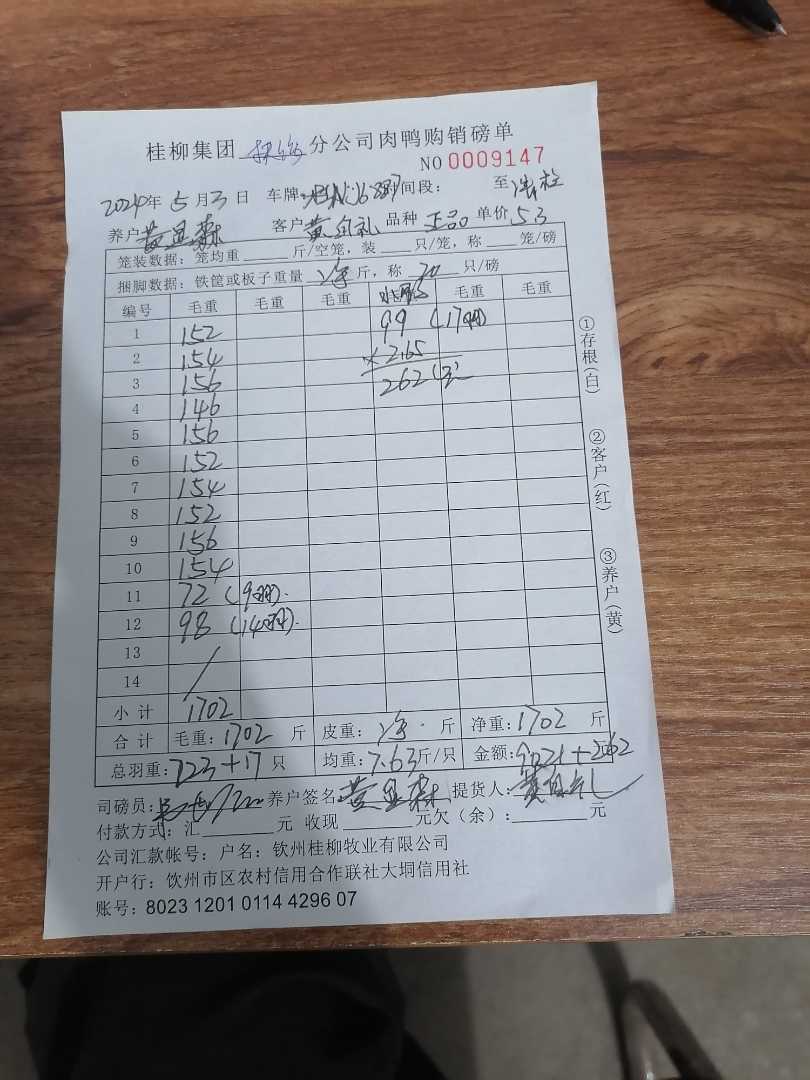 桂柳集团 分公司肉鸭购销磅单
NO 0009147
2024年5月3日 车牌: 时间段: 至
养户 黄显森 客户 黄自礼 品种 正品 单价 5.3
笼装数据: 笼均重 斤/空笼, 装 只/笼, 称 笼/磅
捆脚数据: 铁筐或板子重量 斤, 称 20 只/磅
编号 毛重 毛重 毛重 毛重 毛重
1 152 99 (17羽)
2 154 ×2.65
3 156 262
4 146
5 156
6 152
7 154
8 152
9 156
10 154
11 72 (9羽).
12 98 (14羽).
13
14
小计 1702
合计 毛重: 1702 斤 皮重: 斤 净重: 1702 斤
总羽重: 223+17 只 均重: 7.63 斤/只 金额: 9021+262
司磅员: 养户签名 黄显森 提货人: 黄自礼
付款方式: 汇 元 收现 元 欠(余): 元
公司汇款帐号: 户名: 钦州桂柳牧业有限公司
开户行: 钦州市区农村信用合作联社大垌信用社
账号: 8023 1201 0114 4296 07
①存根(白)
②客户(红)
③养户(黄)